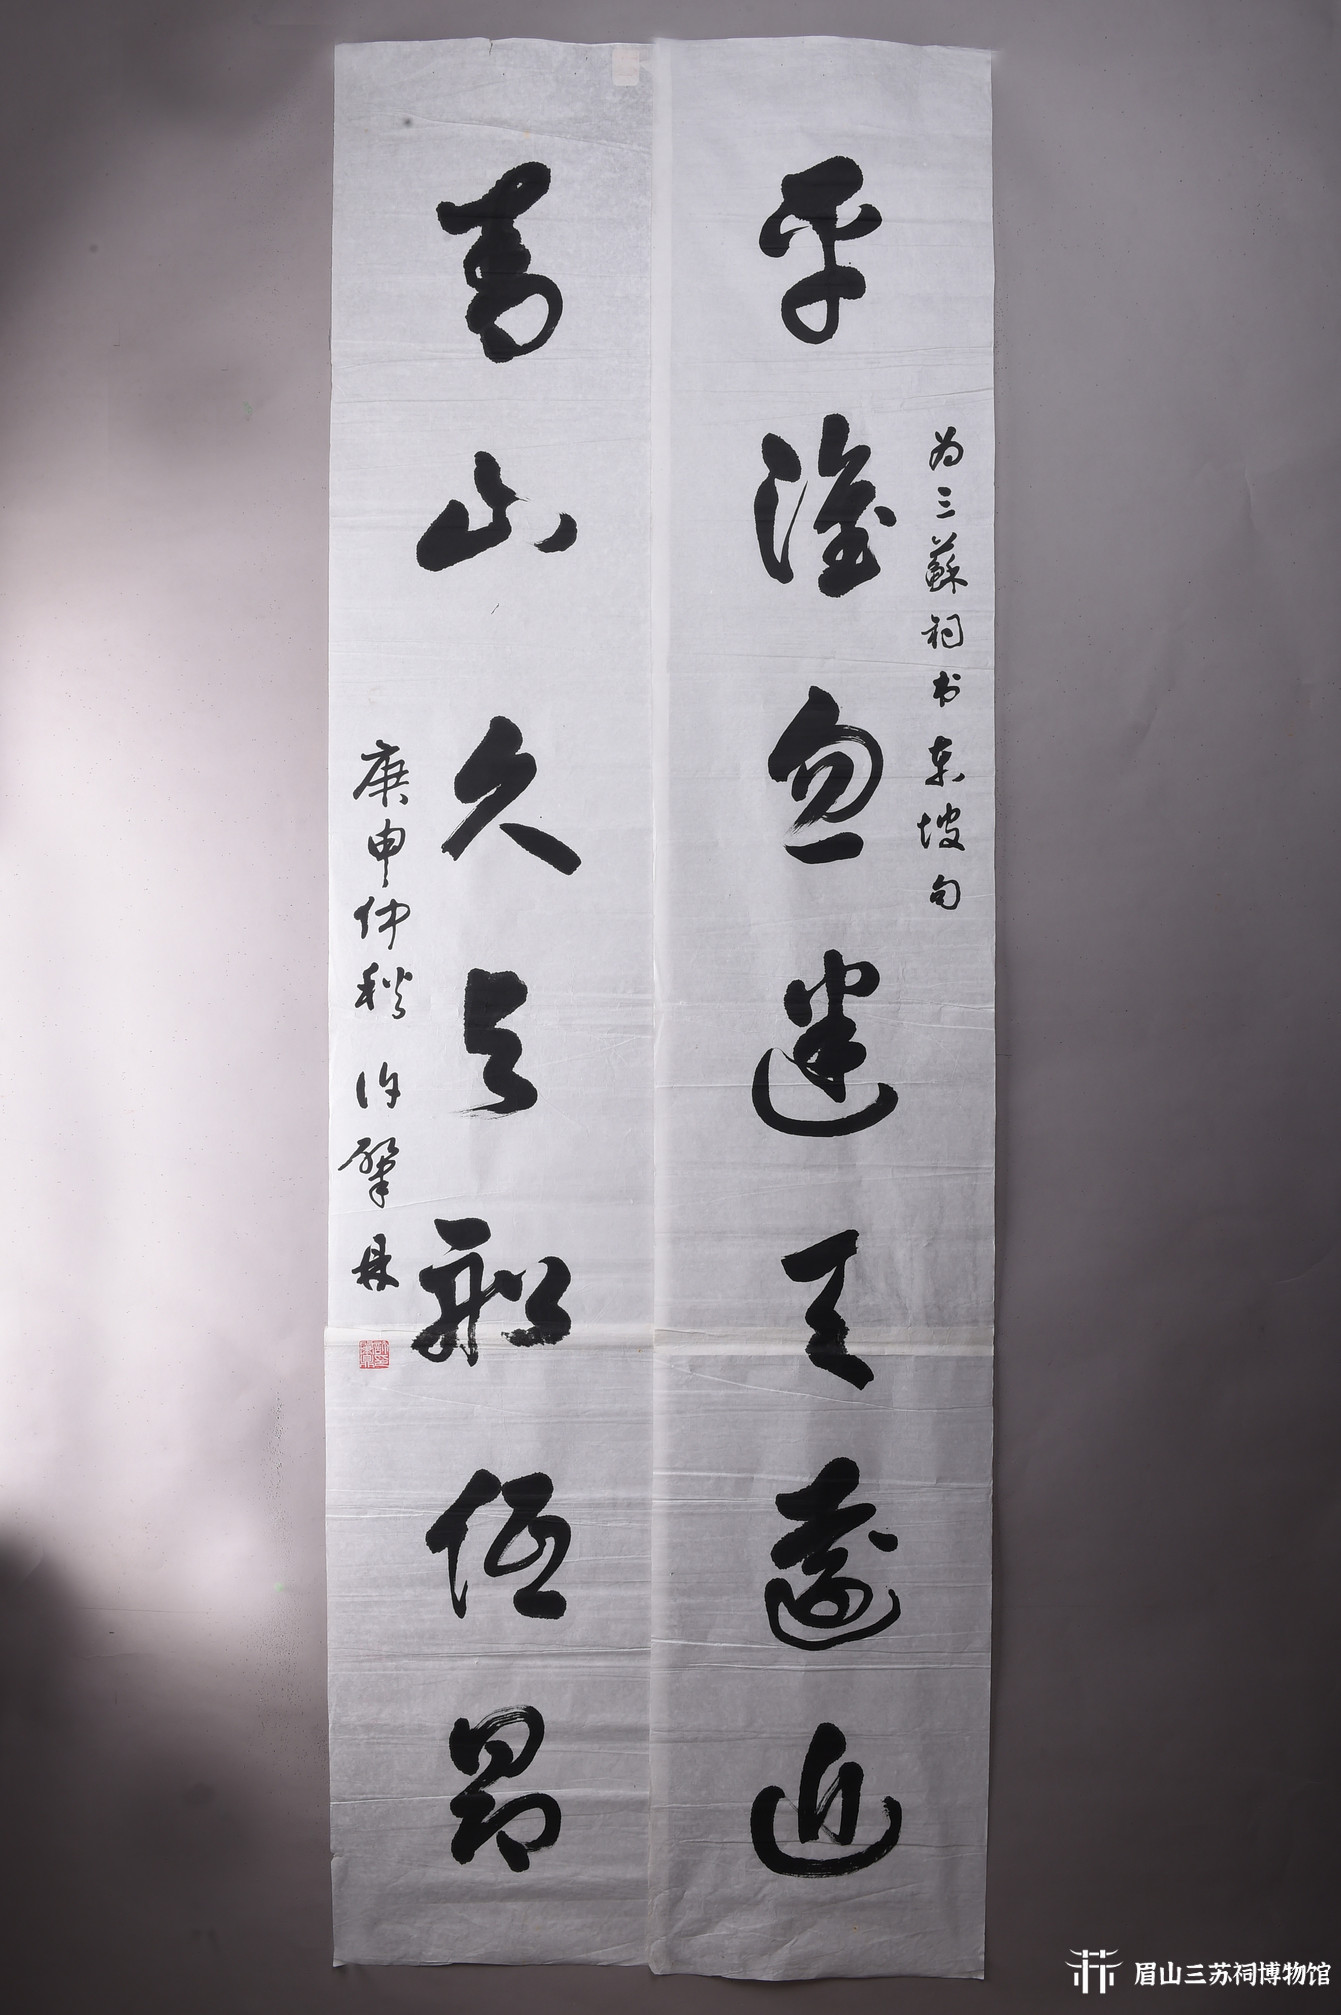 为三蘇祠书东坡句
平淮忽迷天遠近
青山久与船低昂
庚申仲秋 许肇鼎
眉山三苏祠博物馆